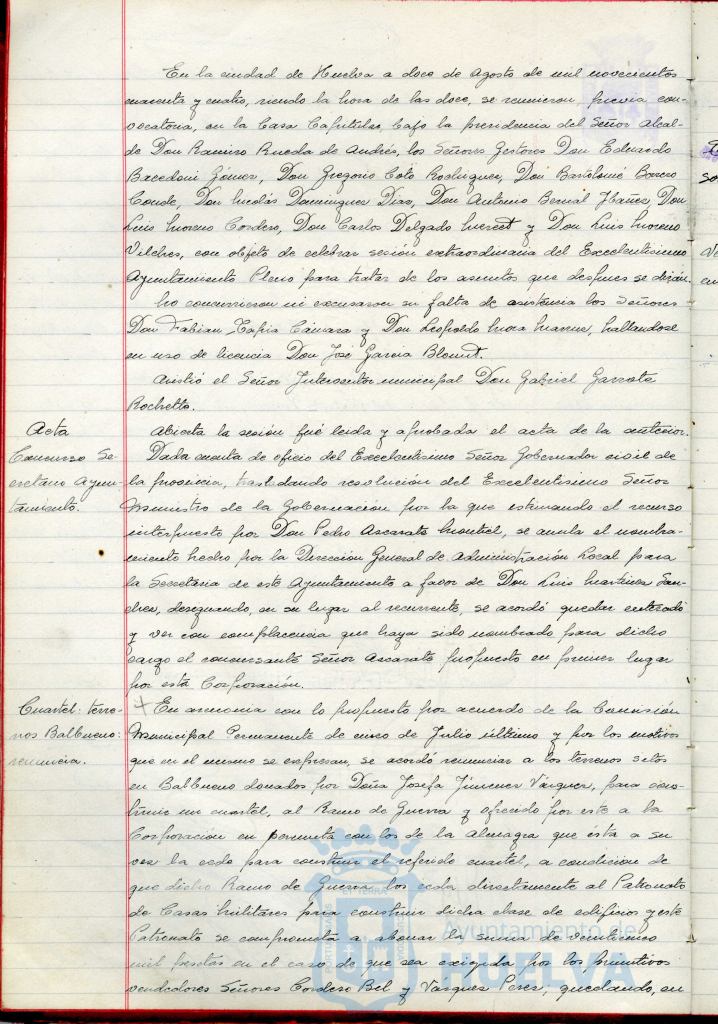 En la ciudad de Huelva a doce de Agosto de mil novecientos
cuarenta y cuatro, siendo la hora de las doce, se reunieron, previa con-
vocatoria, en la Casa Capitular bajo la presidencia del Señor Alcal-
de Don Ramiro Rueda de Andrés, los Señores Gestores Don Eduardo
Bacedoni Gómez, Don Gregorio Coto Rodriguez, Don Bartolomé Borrero
Conde, Don Nicolás Dominguez Diaz, Don Antonio Bernal Ibañez, Don
Luis Moreno Cordero, Don Carlos Delgado y Don Luis Moreno
Vilches, con objeto de celebrar sesión extraordinaria del Excelentísimo
Ayuntamiento Pleno para tratar de los asuntos que despues se dirán.
No concurrieron ni excusaron su falta de asistencia los Señores
Don Fabian Tapia Camara y Don Leopoldo Mora, hallandose
en uso de licencia Don José Garcia Blount.
Asistió el Señor Interventor municipal Don Gabriel Garrote
Rochette.
Acta
Abierta la sesión fué leida y aprobada el acta de la anterior.
Concurso Se-
cretario Ayun-
tamiento.
Dada cuenta de oficio del Excelentísimo Señor Gobernador civil de
la provincia, trasladando resolución del Excelentísimo Señor
Ministro de la Gobernación por la que estimando el recurso
interpuesto por Don Pedro Ascarate Montiel, se anula el nombra-
miento hecho por la Dirección General de Administración Local para
la Secretaria de este Ayuntamiento a favor de Don Luis Martinez San-
chez, designando, en su lugar al recurrente, se acordó quedar enterado
y ver con complacencia que haya sido nombrado para dicho
cargo el concursante Señor Ascarate propuesto en primer lugar
por esta Corporación.
Cuartel: terre-
nos Balbueno:
renuncia.
En armonia con lo propuesto por acuerdo de la Comisión
Municipal Permanente de cinco de Julio último y por los motivos
que en el mismo se expresan, se acordó renunciar a los terrenos sitos
en Balbueno donados por Doña Josefa Jimenez Vázquez, para cons-
truir un cuartel, al Ramo de Guerra y ofrecido por este a la
Corporación en permuta con los de la Almagra que esta a su
vez la cede para construir el referido cuartel, a condición de
que dicho Ramo de Guerra los ceda directamente al Patronato
de Casas Militares para construir dicha clase de edificios y este
Patronato se comprometa a abonar la suma de veinticinco
mil pesetas en el caso de que sea exigida por los primitivos
vendedores Señores Cordero Bel y Vázquez Perez, quedando, en
Ayuntamiento de
HUELVA